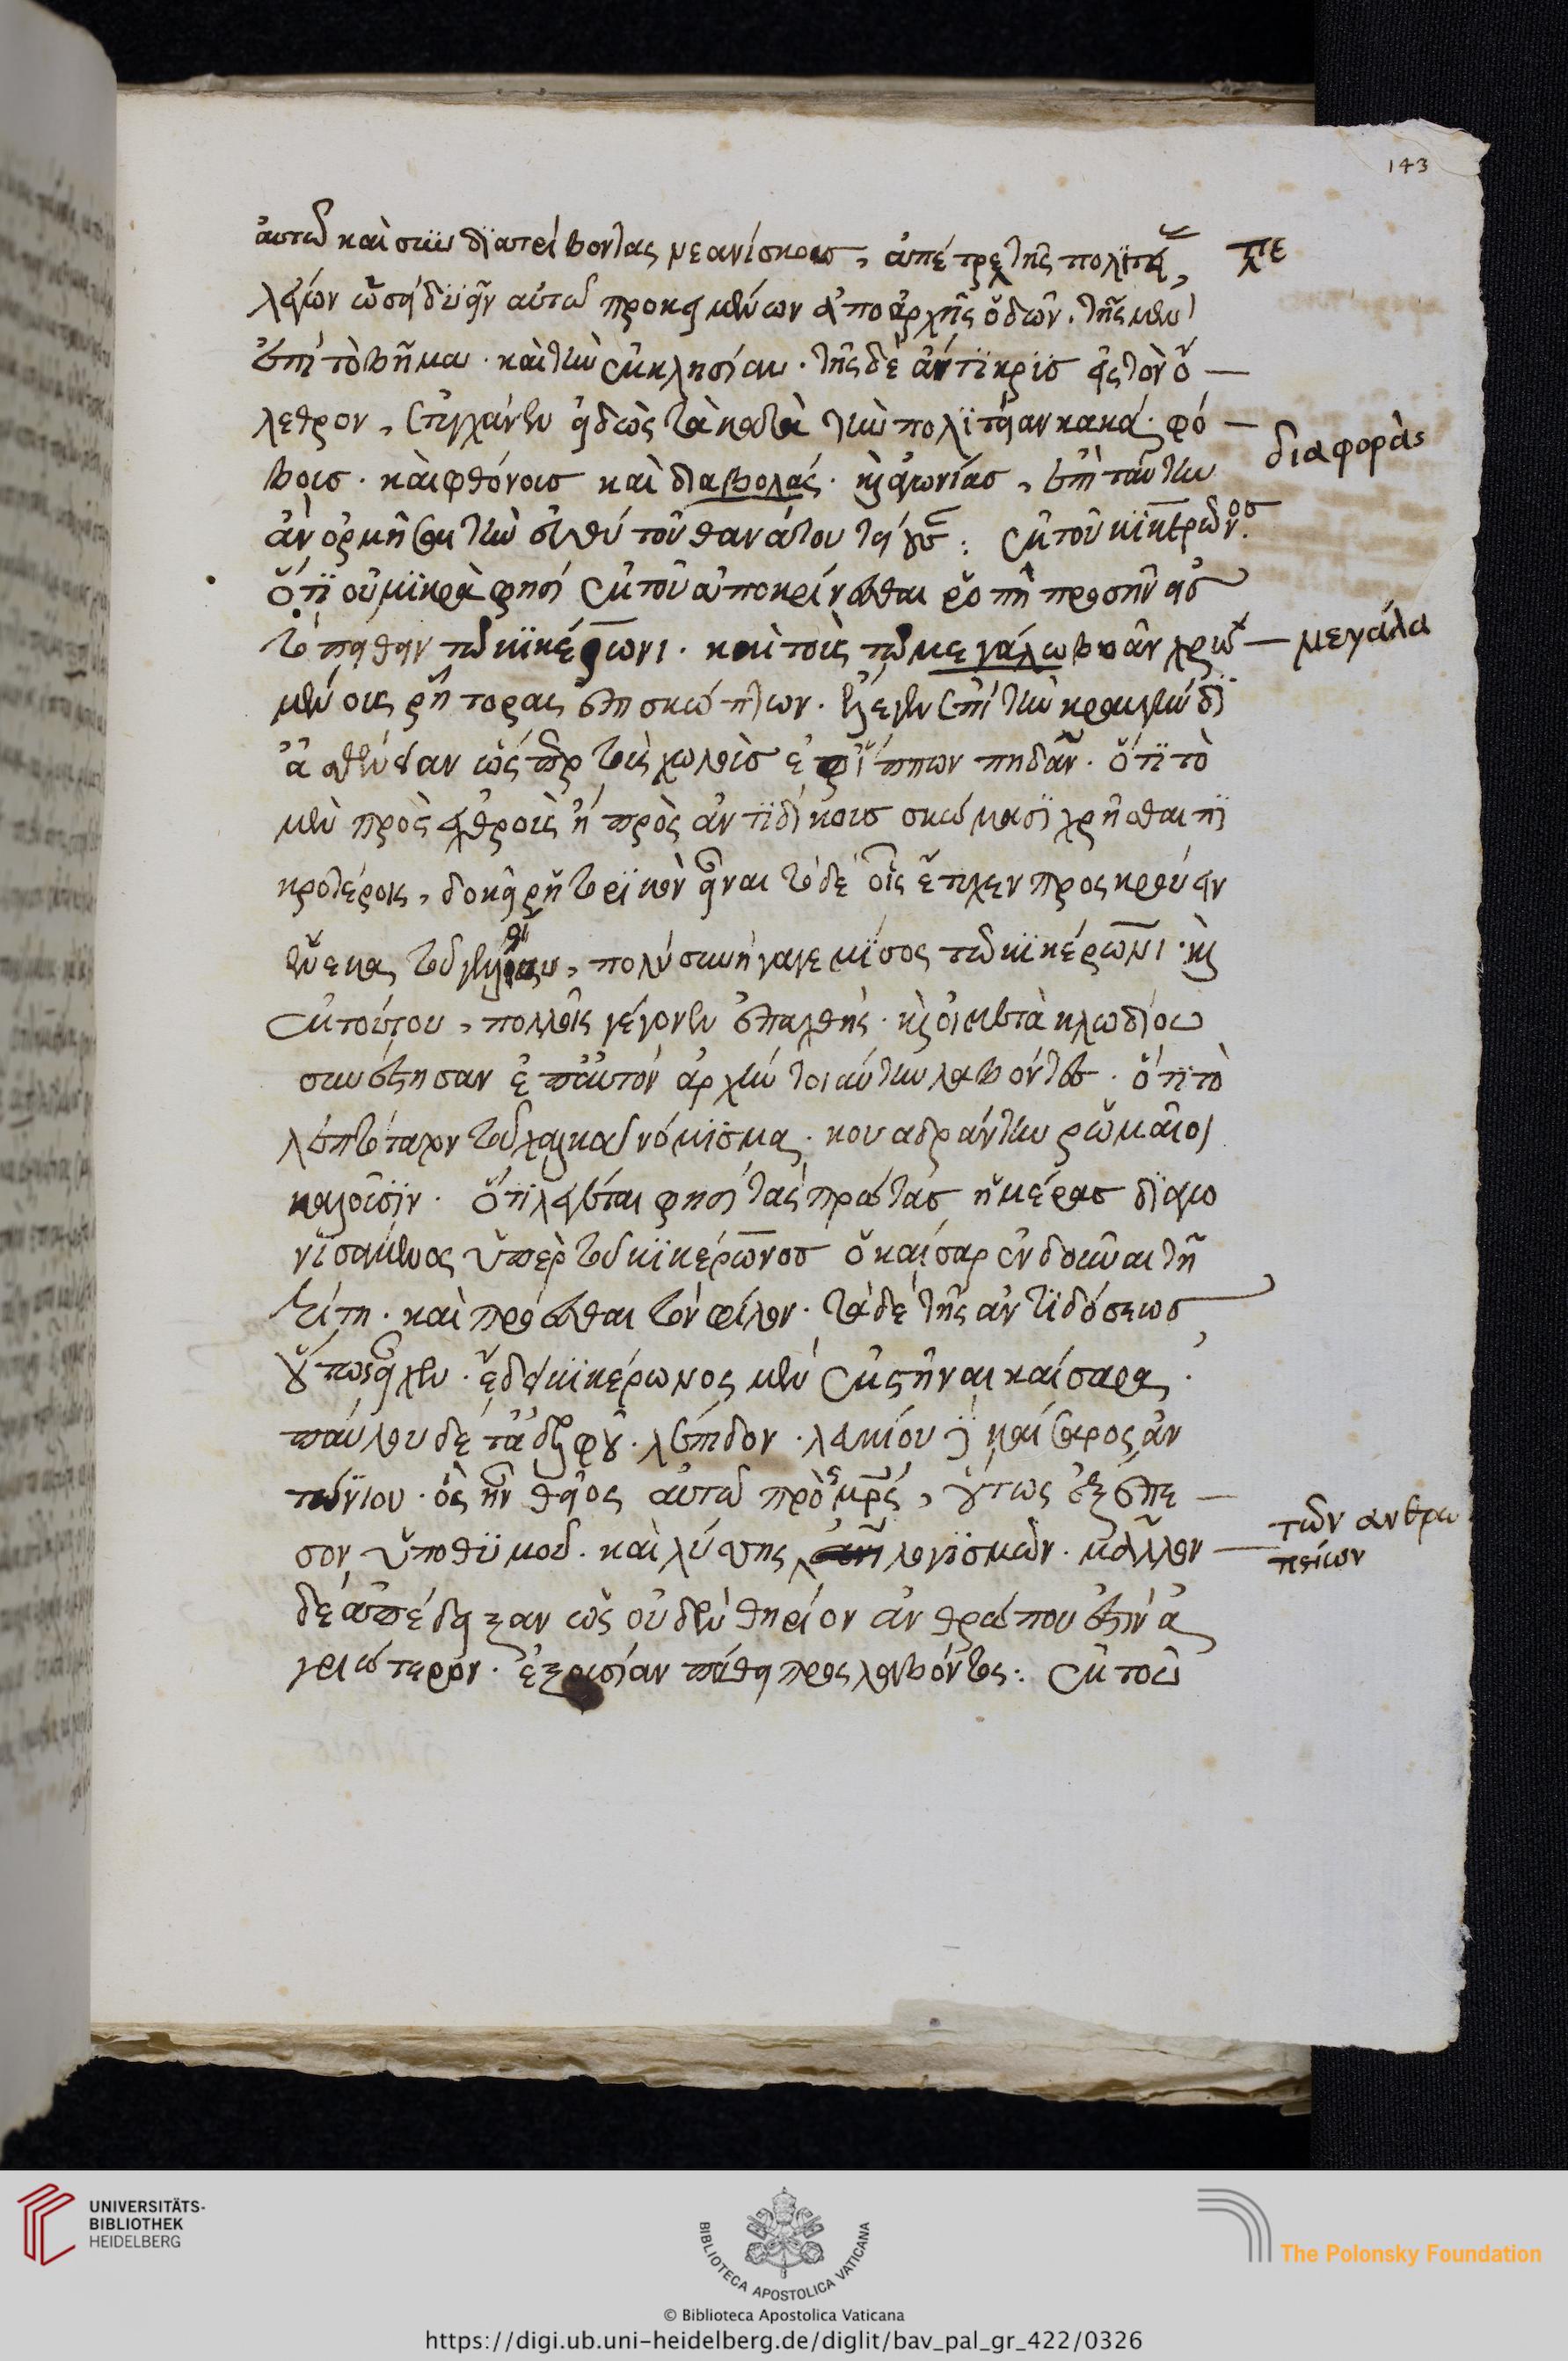 143
αὐτῶ καὶ συνδϊατρίβοντας νεανίσκους, ἀπέτρεπε τῆς πολϊτείας,
λέγων ὡς εἰ δυεῖν αὐτῶ προκειμένων ἀπ' ἀρχῆς ὁδῶν. τῆς μὲν
ἐπὶ τὸ βῆμα. καὶ τὴν ἐκκλησίαν. τῆς δὲ ἄντϊκρϋς εἰς τὸν ὄ —
λεθρον, ἐτύγχανεν εἰδὼς τὰ κατὰ τὴν πολϊτείαν κακά. φό —
βους. καὶ φθόνους καὶ διαβολάς. καὶ ἀγωνίας, ἐπὶ ταύτην
ἂν ὁρμῆσαι τὴν εὐθὺ τοῦ θανάτου τείνουσαν: ἐκ τοῦ κϊκέρωνος.
ὅτϊ οὐ μϊκρά φησι ἐκ τοῦ ὑποκρίνεσθαι ῥοπὴ προσῆν εἰς
τὸ πείθειν τῶ κϊκέρωνι. καὶ τοὺς τῶ μεγάλω βοᾶν χρω —
μένους ῥήτορας ἐπισκώπτων. ἔλεγεν ἐπὶ τὴν κραυγὴν δϊ
ἀσθένειαν ὥσπερ τοὺς χωλοὺς ἐφ' ἵππων πηδᾶν. ὅτϊ τὸ
μὲν πρὸς ἐχθροὺς ἢ πρὸς ἀντϊδίκους σκώμμασϊ χρῆσθαι πϊ
κροτέροις, δοκεῖ ῥητορϊκὸν εἶναι τὸ δὲ οἷς ἔτυχεν προσκρούειν
ἕνεκα τοῦ γελοίου, πολὺ συνήγαγε μῖσος τῶ κϊκέρωνι. καὶ
ἐκ τούτου, πολλοῖς γέγονεν ἐπαχθής. καὶ οἱ μετὰ κλωδίου
συνέστησαν ἐπ' αὐτὸν ἀρχὴν τοιαύτην λαβόντες. ὅτϊ τὸ
λεπτότατον τοῦ χαλκοῦ νόμϊσμα. κουαδράντην ῥωμαῖοι
καλοῦσϊν. ὅτϊ λέγεται φησι τὰς πρώτας ἡμέρας δϊαγω
νϊσάμενος ὑπὲρ τοῦ κϊκέρωνος ὁ καίσαρ ἐνδοῦναι τῆ
τρίτη. καὶ προέσθαι τὸν φίλον. τὰ δὲ τῆς ἀντϊδόσεως
οὕτως εἶχεν. ἔδει κϊκέρωνος μὲν ἐκστῆναι καίσαρα.
παύλου δὲ τἀδελφοῦ. λέπιδον. λευκίου δὲ καίσαρος ἀν
τώνιον. ὃς ἦν θεῖος αὐτῶ πρὸς μητρός, οὕτως ἐξέπε —
σον ὑπὸ θϋμοῦ. καὶ λύσσης λογϊσμῶν. μᾶλλον —
δὲ ἀπέδειξαν ὡς οὐδὲν θηρίον ἀνθρώπου ἐστὶν ἀ
γριώτερον. ἐξουσίαν πάθει προσλαβόντος: ἐκ τοῦ
πε
διαφοράς
μεγάλα
τῶν ανθρω
πείων
UNIVERSITÄTS-
BIBLIOTHEK
HEIDELBERG
BIBLIOTECA APOSTOLICA VATICANA
The Polonsky Foundation
© Biblioteca Apostolica Vaticana
https://digi.ub.uni-heidelberg.de/diglit/bav_pal_gr_422/0326